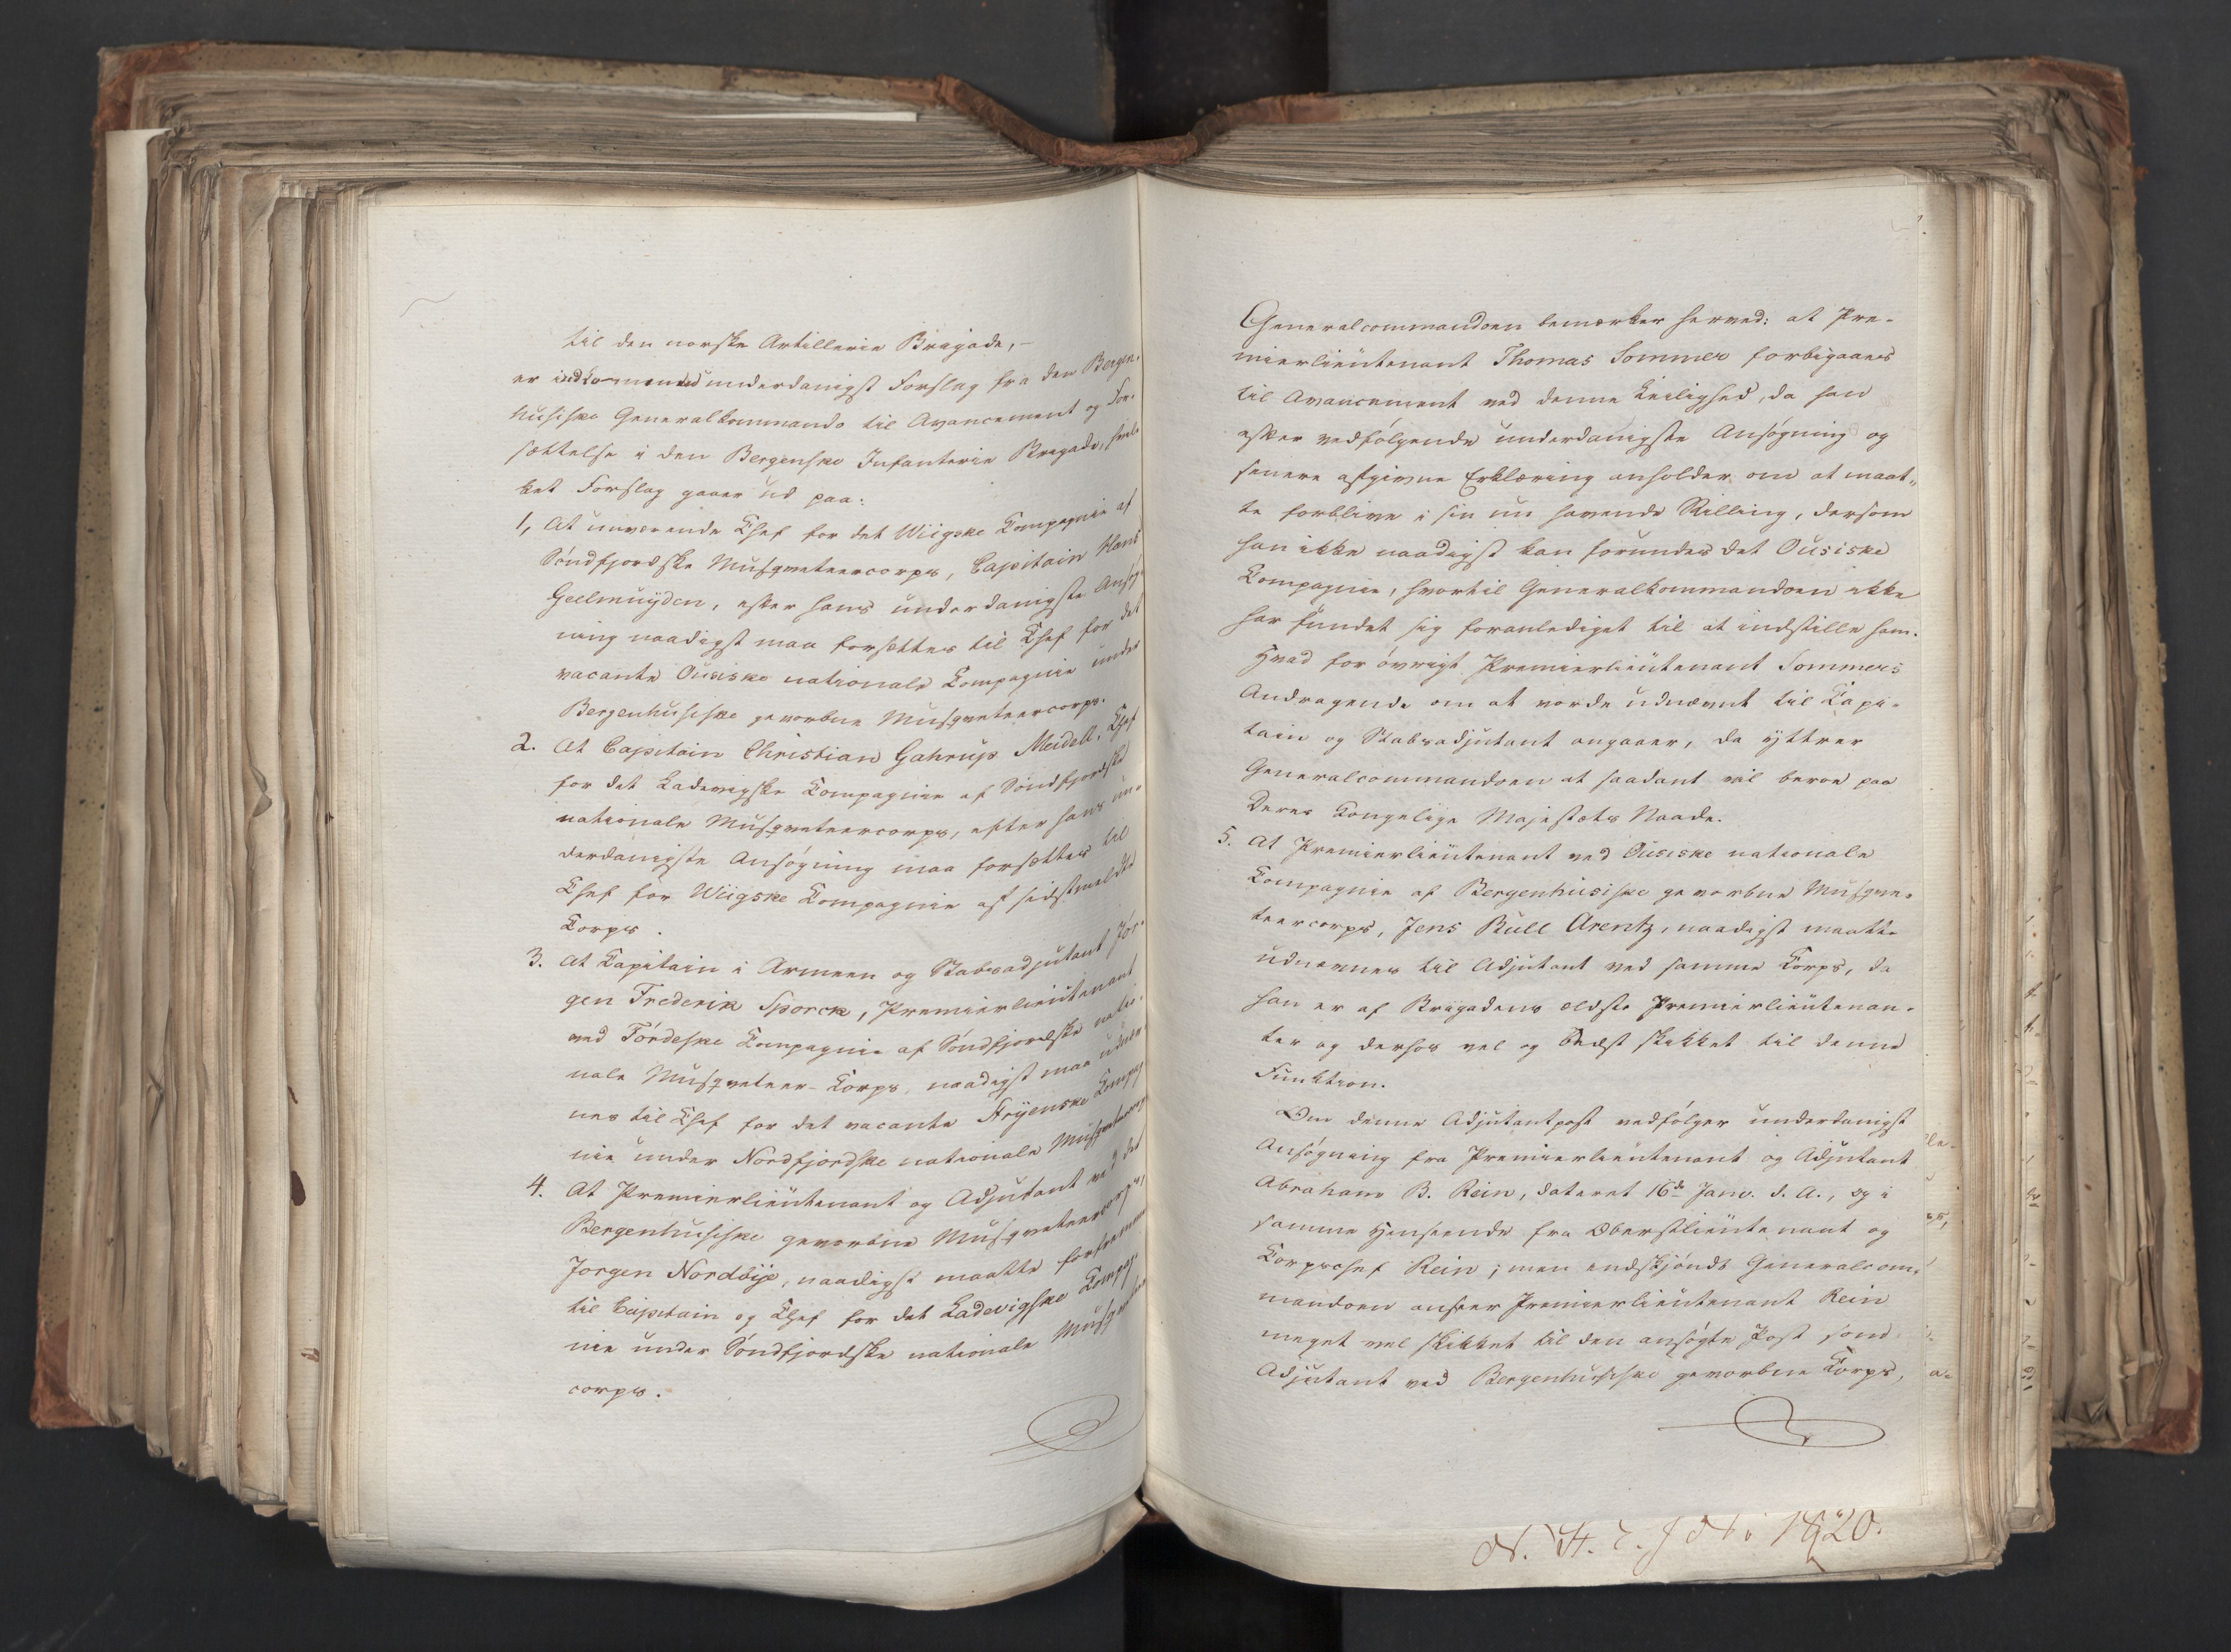 til den norske Artillerie Brigade, –
er indkommen underdanigst Forslag fra den Bergen-
husiske Generalkommando til Avancement og For-
sættelse i den Bergenske Infanterie Brigade, hvil-
ket Forslag gaaer ud paa:
1, At nuværende Chef for det Wiigske Compagnie af
Söndfjordske Musqveteercorps, Capitain Hans
Geelmuijden, efter hans underdanigste Ansøg-
ning naadigst maa forsættes til Chef for det
vacante Ousiske nationale Compagnie under
Bergenhusiske gevorbne Musqveteercorps.
2. At Capitain Christian Gahrup Meidell, Chef
for det Ladevigske Compagnie af Söndfjordske
nationale Musqveteercorps, efter hans un-
derdanigste Ansøgning maa forsættes til
Chef for Wiigske Compagnie af sidstmeldte
Corps.
3. At Capitain i Armeen og Stabsadjutant Jør-
gen Frederik Sporck, Premierlieutenant
ved Fördeske Compagnie af Söndfjordske natio-
nale Musqveteer-Corps, naadigst maa udnæv-
nes til Chef for det vacante Stryenske Compag
nie under Nordfjordske nationale Musqveteercorps
4. At Premierlieutenant og Adjutant ved det
Bergenhusiske gevorbne Musqveteercorps,
Jørgen Nordöije, naadigst maatte forfremmes
til Capitain og Chef for det Ladevigske Compag-
nie under Söndfjordske nationale Musqveteer
corps.
Generalcommandoen bemærker herved: at Pre-
mierlieutenant Thomas Sommer forbigaaes
til Avancement ved denne Leilighed, da han
efter vedfølgende underdanigste Ansøgning og
senere afgivne Erklæring anholder om at maat-
te forblive i sin nu havende Stilling, dersom
han ikke naadigst kan forundes det Ousiske
Compagnie, hvortil Generalkommandoen ikke
har fundet sig foranlediget til at indstille ham.
Hvad for øvrigt Premierlieutenant Sommers
Andragende om at vorde udnævnt til Capi-
tain og Stabsadjutant angaaer, da yttrer
Generalcommandoen at saadant vil beroe paa
Deres Kongelige Majestæts Naade.
5. At Premierlieutenant ved Ousiske nationale
Compagnie af Bergenhusiske gevorbne Musqve-
teercorps, Jens Bull Arentz, naadigst maatte
udnævnes til Adjutant ved samme Corps, da
han er af Brigadens ældste Premierlieutenan-
ter og derhos vel og bedst skikket til denne
Funktion.
Om denne Adjutantpost vedfølger underdanigst
Ansøgning fra Premierlieutenant og Adjutant
Abraham B. Rein, dateret 16de Janv. d. A., og i
samme Henseende fra Oberstlieutenant og
Corpschef Rein; men endskjöndt Generalcom-
mandoen anseer Premierlieutenant Rein
meget vel skikket til den ansøgte Post som
Adjutant ved Bergenhusiske gevorbne Corps,
1820.